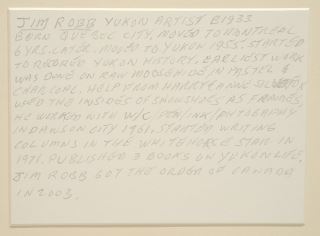 JIM ROBB YUKON ARTIST B1933
BORN QUEBEC CITY, MOVED TO MONTREAL
6YRS. LATER, MOVED TO YUKON 1955, STARTED
TO RECORD YUKON HISTORY, EARLIEST WORK
WAS DONE ON RAW MOOSEHIDE IN PASTEL &
CHARCOAL, HELP FROM HARRY & ANNE
USED THE INSIDES OF SNOWSHOES AS FRAMES,
HE WORKED WITH W/C/PEN/INK/PHTOGRAPHY
IN DAWSON CITY 1961, STARTED WRITING
COLUMNS IN THE WHITEHORSE STAR IN
PUBLISHED 3 BOOKS ON YUKON LIFE,
JIM ROBB GOT THE ORDER OF CANADA
IN 2003.